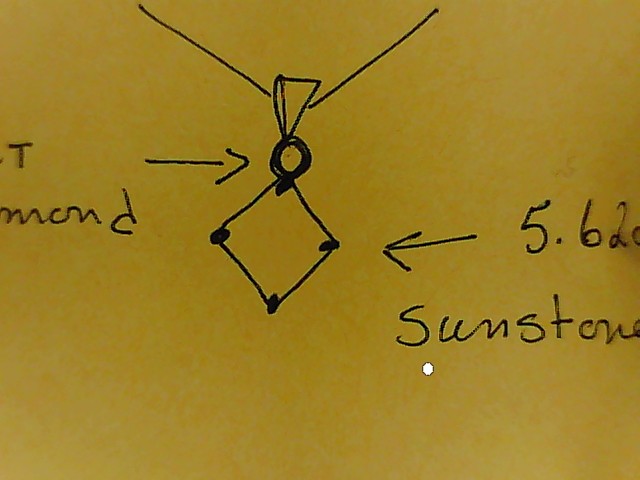 T
mond
5.62c
Sunstone